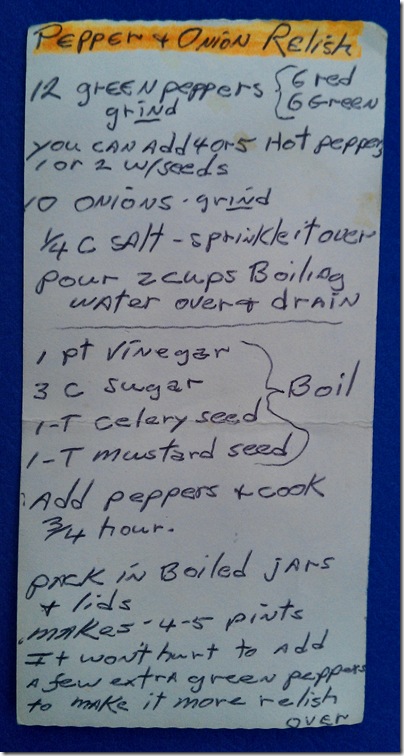 PEPPER & ONION RELISH
12 grEEN peppers { 6 red
grind 6 GreeN
you CAN Add 4 or 5 Hot peppers
1 or 2 w/seeds
10 ONIONS - grind
1/4 C SAlt - sprinkle it over
pour 2 cups Boiling
WATER over & drAIN
1 pt Vinegar
3 C sugar
1-T celery seed
1-T mustard seed
} Boil
Add peppers & cook
3/4 hour.
pACK IN Boiled JArs
& lids
MAKes - 4-5 pints
It won't hurt to Add
A few extrA green peppers
to mAke it more relish
OVER